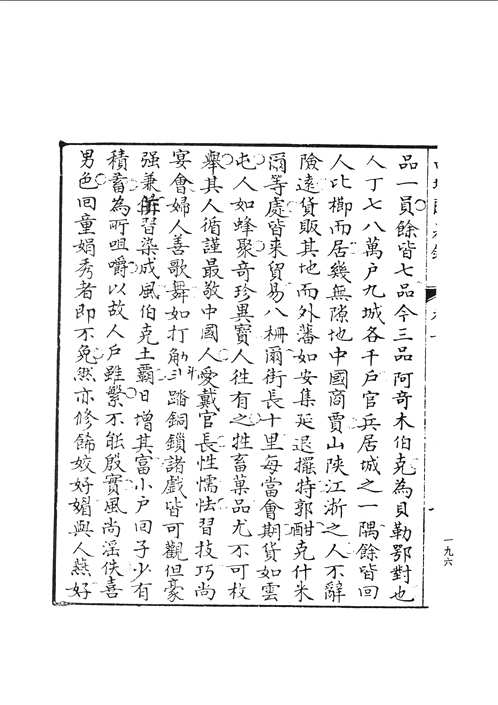 品一員餘皆七品今三品阿奇木伯克為貝勒鄂對也
人丁七八萬戶九城各千戶官兵居城之一隅餘皆回
人比櫛而居幾無隙地中國商賈山陝江浙之人不辭
險遠貨販其地而外藩如安集延退擺特郭酣克什米
爾等處皆來貿易八柵爾街長十里每當會期貨如雲
屯人如蜂聚奇珍異寶人徃有之牲畜菓品尤不可枚
舉其人循謹最敬中國人愛戴官長性懦怯習技巧尚
宴會婦人善歌舞如打觔斗踏銅鎖諸戲皆可觀但豪
强兼併習染成風伯克土霸日增其富小戶回子少有
積蓄為所咀嚼以故人戶雖繁不能殷實風尚滛佚喜
男色回童娟秀者即不免然亦修飾姣好媚與人燕好
一九六